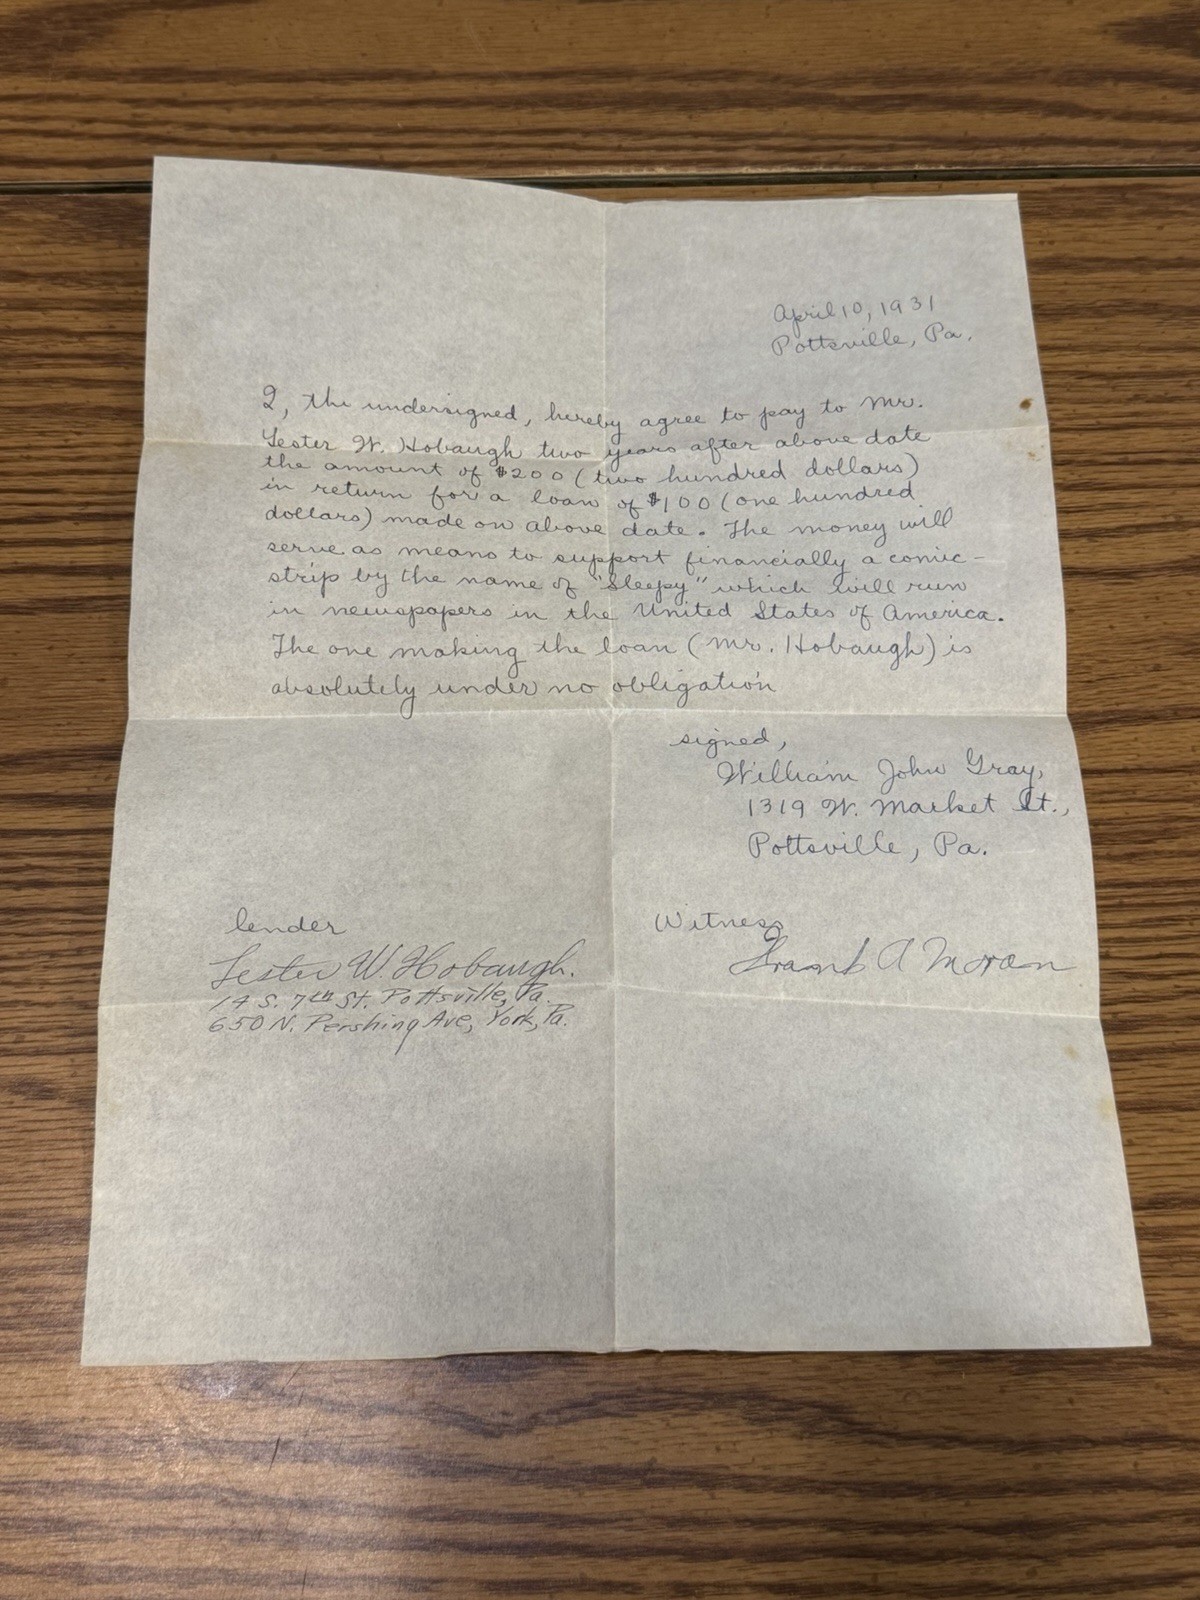 April 10, 1931
Pottsville, Pa.
I, the undersigned, hereby agree to pay to Mr.
Lester W. Hobaugh two years after above date
the amount of $200 (two hundred dollars)
in return for a loan of $100 (one hundred
dollars) made on above date. The money will
serve as means to support financially a comic-
strip by the name of "Sleepy" which will run
in newspapers in the United States of America.
The one making the loan (Mr. Hobaugh) is
absolutely under no obligation
signed,
William John Gray,
1319 W. Market St.,
Pottsville, Pa.
lender
Lester W. Hobaugh.
14 S. 7th St. Pottsville, Pa.
650 N. Pershing Ave, York, Pa.
Witness
Frank A Moran